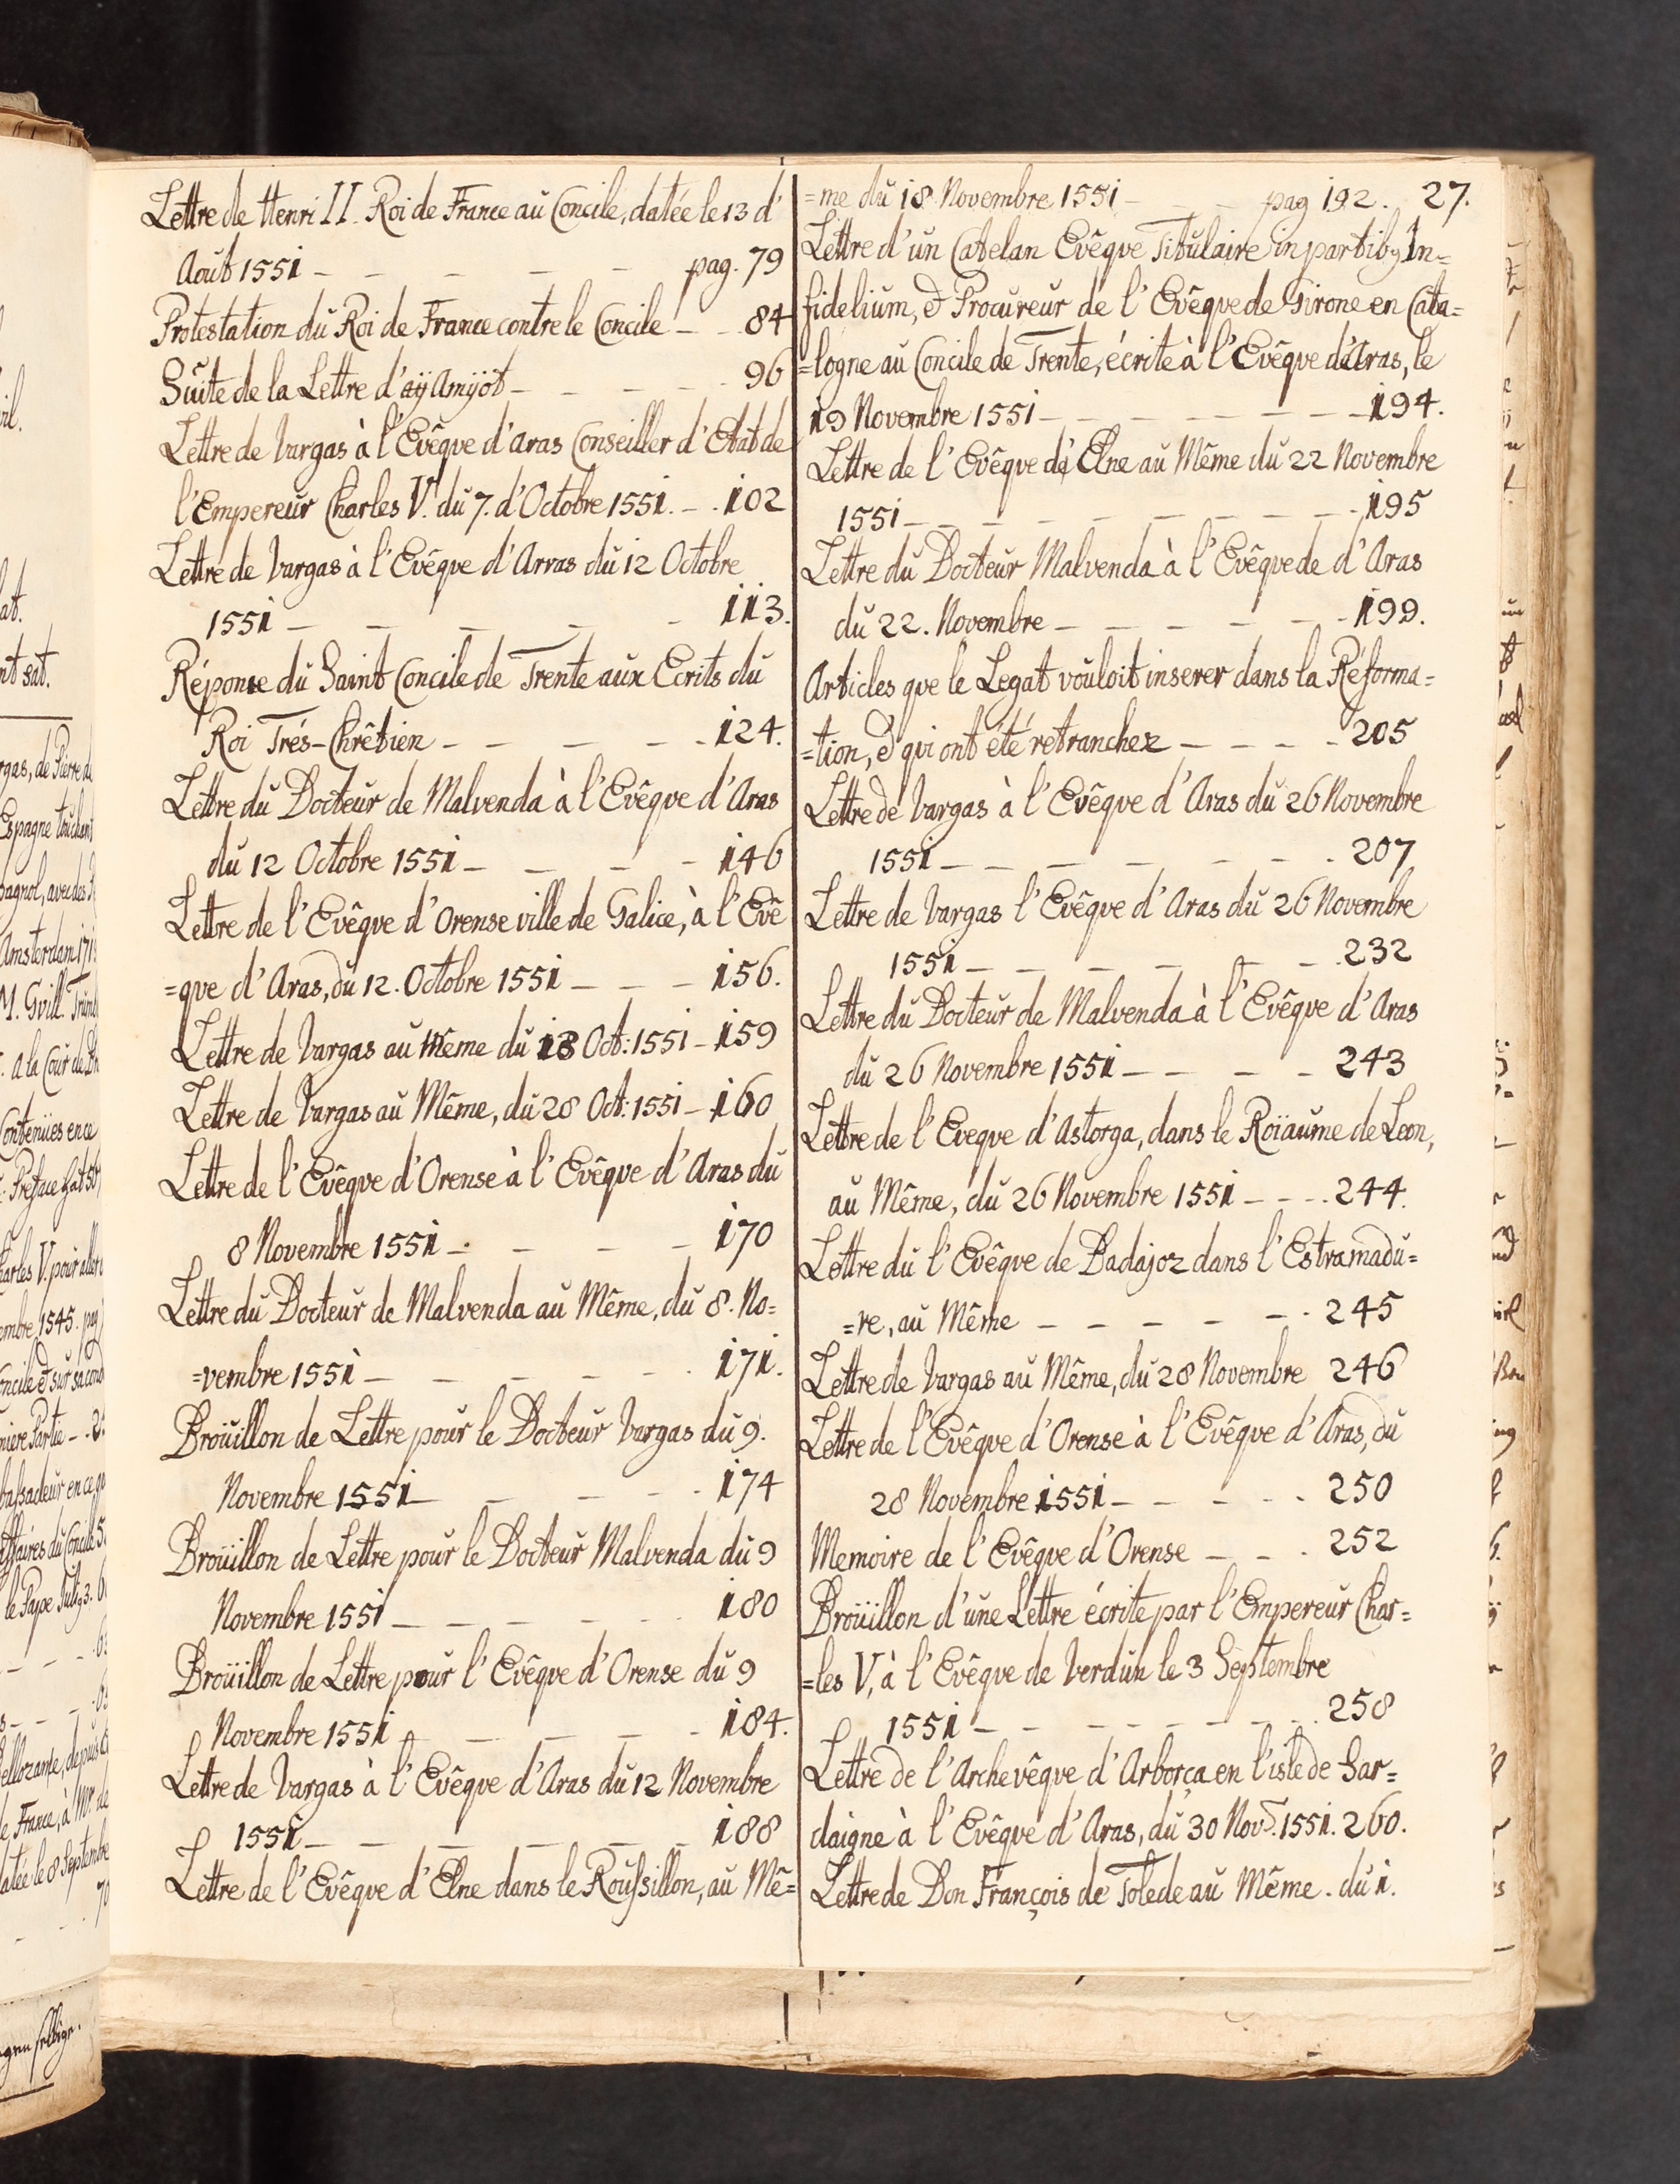 Lettre de Henri II. Roi de France aŭ Concile, datée le 13 d'
Août 1551 - - - - - pag. 79
Protestation dŭ Roi de France contre le Concile - - 84
Sŭite de la Lettre d'aÿ Amÿot - - - - - 96
Lettre de Vargas à l'Evêqve d'Aras Conseiller d'Etat de
l'Empereŭr Charles V. dŭ 7. d'Octobre 1551. - . 102
Lettre de Vargas à l'Evêqve d'Arras dŭ 12 Octobre
1551 - - - - - 113.
Réponse dŭ Saint Concile de Trente aŭx Ecrits dŭ
Roi Trés-Chrêtien - - - - - 124.
Lettre dŭ Docteŭr de Malvenda à l'Evêqve d'Aras
dŭ 12 Octobre 1551 - - - - 146
Lettre de l'Evêqve d'Orense ville de Galice, à l'Evê
=qve d'Aras, dŭ 12. Octobre 1551 - - - 156.
Lettre de Vargas aŭ même dŭ 13 Oct: 1551 - 159
Lettre de Vargas aŭ Même, dŭ 28 Oct: 1551 - 160
Lettre de l'Evêqve d'Orense à l'Evêqve d'Aras dŭ
8 Novembre 1551 - - - - - 170
Lettre dŭ Docteŭr de Malvenda aŭ Même, dŭ 8. No=
=vembre 1551 - - - - - - 171.
Broŭillon de Lettre poŭr le Docteŭr Vargas dŭ 9.
Novembre 1551 - - - - - 174
Broŭillon de Lettre poŭr le Docteŭr Malvenda dŭ 9
Novembre 1551 - - - - - - 180
Broŭillon de Lettre poŭr l'Evêqve d'Orense dŭ 9
Novembre 1551 - - - - - 184.
Lettre de Vargas à l'Evêqve d'Aras dŭ 12 Novembre
1551 - - - - - - 188
Lettre de l'Evêqve d'Elne dans le Roŭssillon, aŭ Mê=
=me dŭ 18 Novembre 1551 - - - pag 192. 27.
Lettre d'ŭn Catelan Evêqve Titŭlaire in partibꝰ In=
fideliŭm, & Procŭreŭr de l'Evêqve de Girone en Cata=
=logne aŭ Concile de Trente, écrite à l'Evêqve d'Aras, le
19 Novembre 1551 - - - - - - - 194.
Lettre de l'Evêqve d'Elne aŭ Même dŭ 22 Novembre
1551 - - - - - - - - - 195
Lettre dŭ Docteŭr Malvenda à l'Evêqve de d'Aras
dŭ 22. Novembre - - - - - - 199.
Articles qve le Legat voŭloit inserer dans la Réforma=
=tion, & qvi ont été retranchez - - - - 205
Lettre de Vargas à l'Evêqve d'Aras dŭ 26 Novembre
1551 - - - - - - - 207
Lettre de Vargas l'Evêqve d'Aras dŭ 26 Novembre
1551 - - - - - - 232
Lettre dŭ Docteŭr de Malvenda à l'Evêqve d'Aras
dŭ 26 Novembre 1551 - - - - 243
Lettre de l'Eveqve d'Astorga, dans le Roïaŭme de Leon,
aŭ Même, dŭ 26 Novembre 1551 - - - . 244.
Lettre dŭ l'Evêqve de Badajoz dans l'Estramadŭ=
=re, aŭ Même - - - - - - 245
Lettre de Vargas aŭ Même, dŭ 28 Novembre 246
Lettre de l'Evêqve d'Orense à l'Evêqve d'Aras, dŭ
28 Novembre 1551 - - - - - 250
Memoire de l'Evêqve d'Orense - - - 252
Broŭillon d'ŭne Lettre écrite par l'Empereŭr Char=
=les V, à l'Evêqve de Verdŭn le 3 Septembre
1551 - - - - - - - - 258
Lettre de l'Archevêqve d'Arborça en l'isle de Sar=
daigne à l'Evêqve d'Aras, dŭ 30 Nov. 1551. 260.
Lettre de Don François de Tolede aŭ Même. dŭ 1.